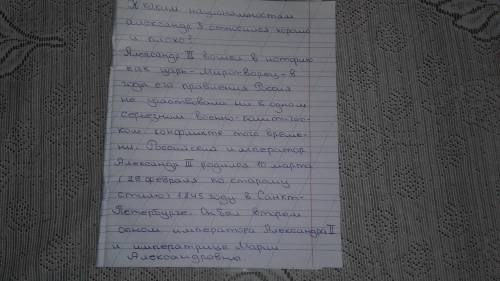 К каким национальностям
Александр 3 относился хорошо
и плохо?
Александр III вошел в историю
как царь-Миротворец-в
года его правления Россия
не участвовала ни в одном
серьезном военно-политичес-
ком конфликте того време-
ни. Российский император
Александр III родился 10 марта
(26 февраля по старому
стилю) 1845 году в Санкт-
Петербурге. Он был вторым
сыном императора Александра II
и императрице Марии
Александровны.